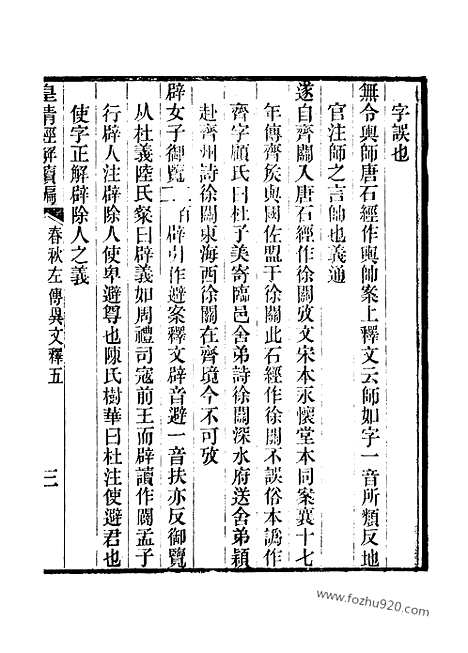 字誤也
無令輿師唐石經作輿帥案上釋文云師如字一音所類反地
官注師之言帥也義通
遂自齊關入唐石經作徐關攷文宋本永懷堂本同案襄十七
年傳齊矦與國佐盟于徐關此石經作徐關不誤俗本譌作
齊字顧氏曰杜子美寄臨邑舍弟詩徐關深水府送舍弟穎
赴齊州詩徐關東海西徐關在齊境今不可攷
辟女子御覽二百辟引作避案釋文辟音避一音扶亦反御覽
从杜義陸氏粲曰辟義如周禮司寇前王而辟讀作闢孟子
行辟人注辟除人使卑避尊也陳氏樹華曰杜注使避君也
使字正解辟除人之義
皇淸經解續編
春秋左傳異文釋五
三
www.fozhu920.com